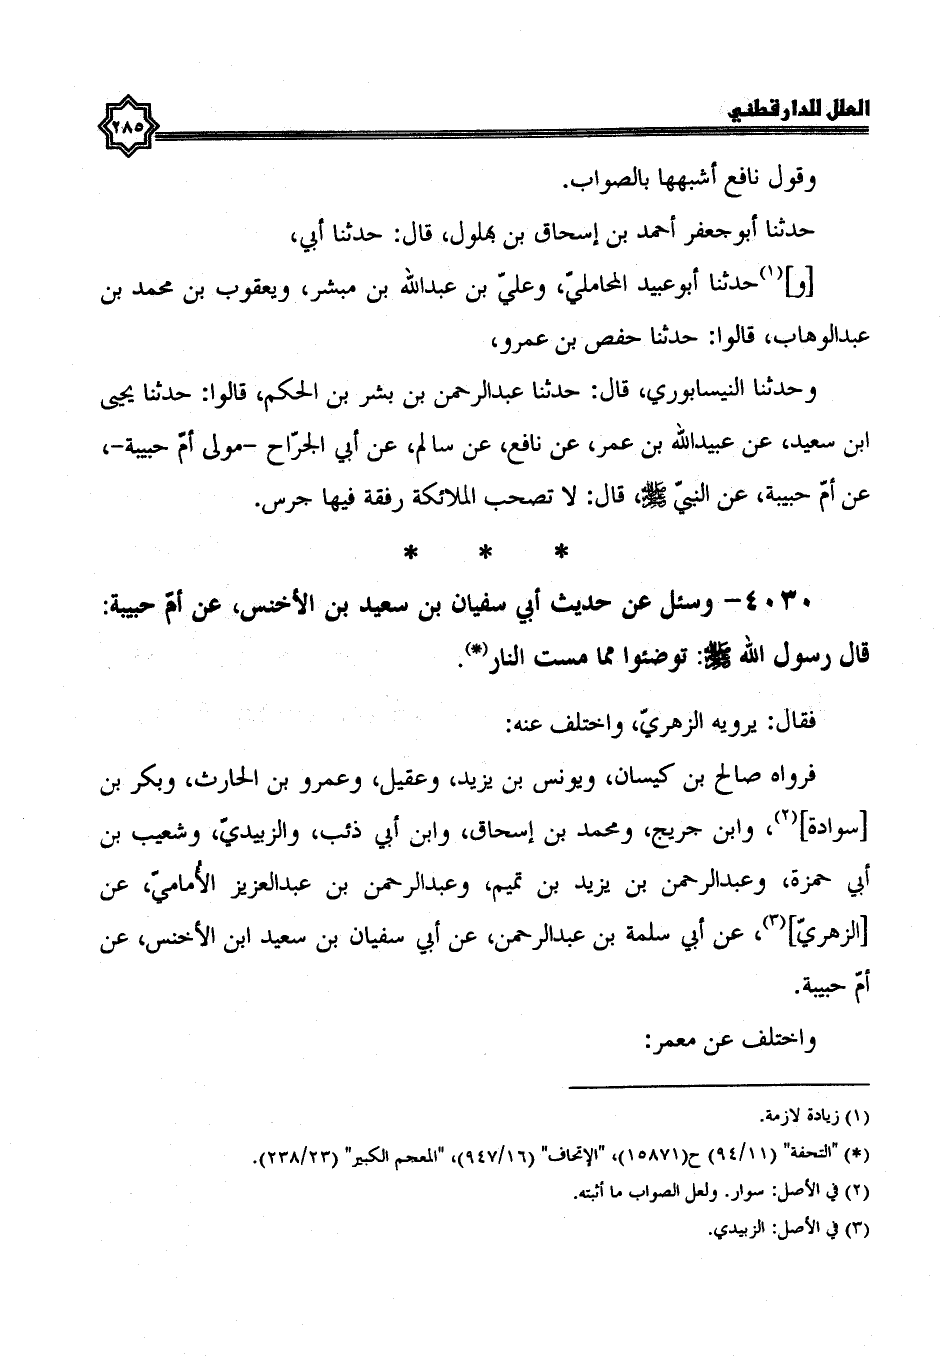 العلل للدارقطني
٢٨٥
وقول نافع أشبهها بالصواب.
حدثنا أبوجعفر أحمد بن إسحاق بن بهلول، قال: حدثنا أبي،
[و](١)حدثنا أبوعبيد المحامليّ، وعليّ بن عبدالله بن مبشر، ويعقوب بن محمد بن
عبدالوهاب، قالوا: حدثنا حفص بن عمرو،
وحدثنا النيسابوري، قال: حدثنا عبدالرحمن بن بشر بن الحكم، قالوا: حدثنا يحيى
ابن سعيد، عن عبيدالله بن عمر، عن نافع، عن سالم، عن أبي الجرّاح -مولى أمّ حبيبة-،
عن أمّ حبيبة، عن النبيّ ﷺ، قال: لا تصحب الملائكة رفقة فيها جرس.
* * *
٤٠٣٠- وسئل عن حديث أبي سفيان بن سعيد بن الأخنس، عن أمّ حبيبة:
قال رسول الله ﷺ: توضئوا مما مست النار(*).
فقال: يرويه الزهريّ، واختلف عنه:
فرواه صالح بن كيسان، ويونس بن يزيد، وعقيل، وعمرو بن الحارث، وبكر بن
[سوادة](٢)، وابن جريج، ومحمد بن إسحاق، وابن أبي ذئب، والزبيديّ، وشعيب بن
أبي حمزة، وعبدالرحمن بن يزيد بن تميم، وعبدالرحمن بن عبدالعزيز الأُماميّ، عن
[الزهريّ](٣)، عن أبي سلمة بن عبدالرحمن، عن أبي سفيان بن سعيد ابن الأخنس، عن
أمّ حبيبة.
واختلف عن معمر:
(١) زيادة لازمة.
(*) "التحفة" (٩٤/١١) ح(١٥٨٧١)، "الإتحاف" (٩٤٧/١٦)، "المعجم الكبير" (٢٣٨/٢٣).
(٢) في الأصل: سوار. ولعل الصواب ما أثبته.
(٣) في الأصل: الزبيدي.